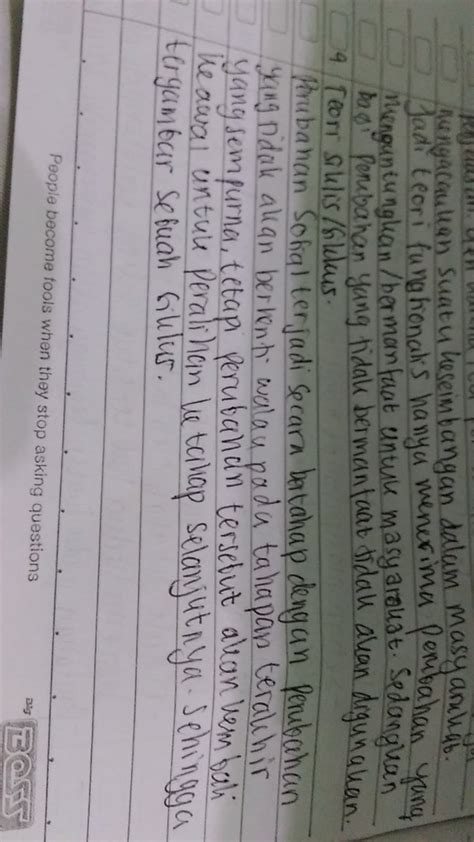 mengacaukan suatu keseimbangan dalam masyarakat.
Jadi teori fungsionals hanya menerima perubahan yang
menguntungkan/bermanfaat untuk masyarakat. Sedangkan
bagi perubahan yang tidak bermanfaat tidak akan digunakan.
4 Teori siklis/Siklus.
Perubahan Sosial terjadi secara bertahap dengan perubahan
yang tidak akan berhenti walau pada tahapan terakhir
yang sempurna, tetapi perubahan tersebut akan kembali
ke awal untuk peralihan ke tahap selanjutnya. Sehingga
tergambar sebuah Siklus.
People become fools when they stop asking questions
Big
BOSS